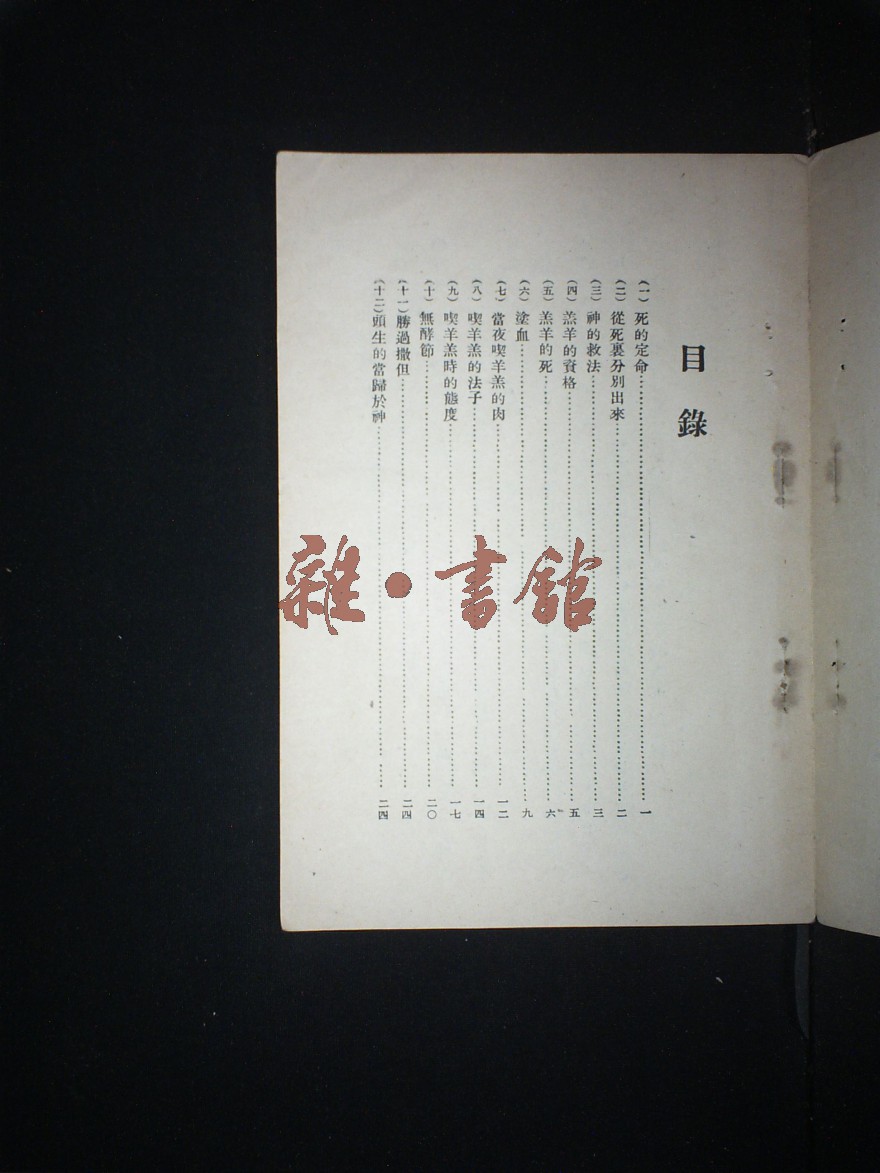 目錄
(一)死的定命……一
(二)從死裏分別出來……二
(三)神的救法……三
(四)羔羊的資格……五
(五)羔羊的死……六
(六)塗血……九
(七)當夜喫羊羔的肉……一二
(八)喫羊羔的法子……一四
(九)喫羊羔時的態度……一七
(十)無酵節……二〇
(十一)勝過撒但……二四
(十二)頭生的當歸於神……二四
雜·書館